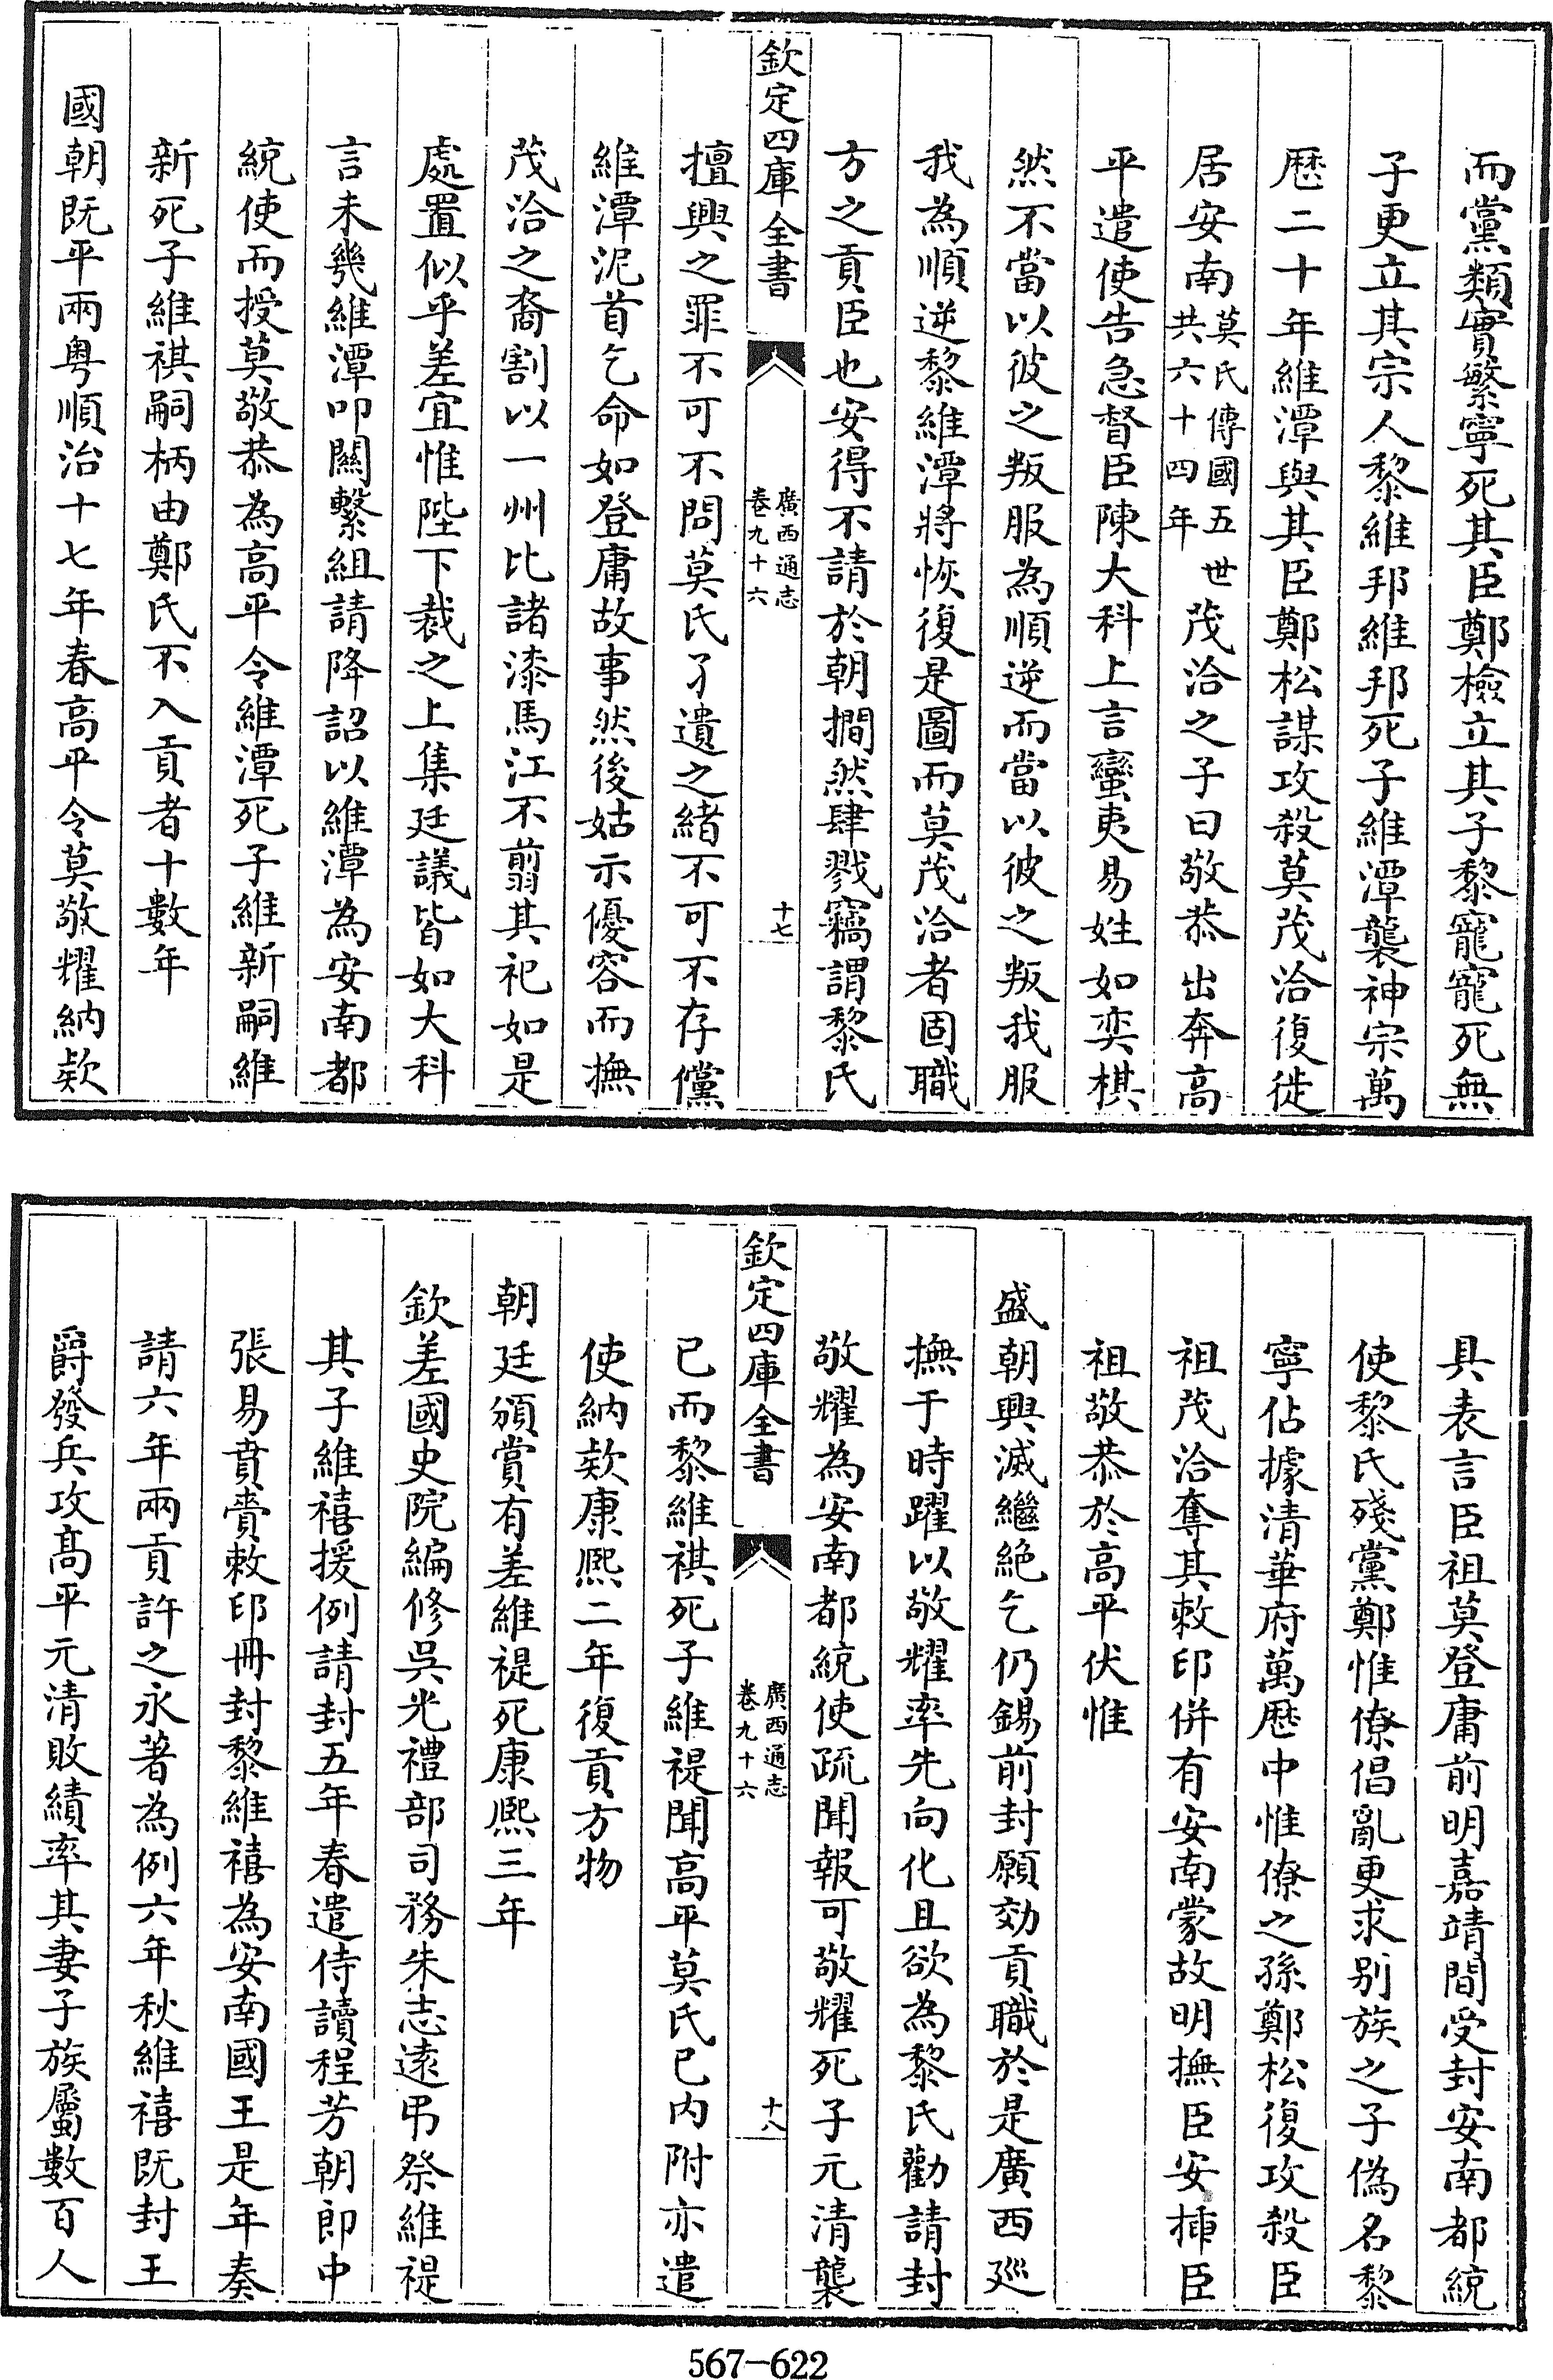 而黨類實繁寧死其臣鄭檢立其子黎寵寵死無
子更立其宗人黎維邦維邦死子維潭襲神宗萬
歴二十年維潭與其臣鄭松謀攻殺莫茂洽復徙
居安南莫氏傳國五世共六十四年茂洽之子曰敬恭出奔高
平遣使告急督臣陳大科上言蠻夷易姓如奕棋
然不當以彼之叛服為順逆而當以彼之叛我服
我為順逆黎維潭將恢復是圖而莫茂洽者固職
方之貢臣也安得不請於朝擱然肆戮竊謂黎氏
欽定四庫全書
廣西通志
卷九十六
十七
擅興之罪不可不問莫氏孑遺之緒不可不存儻
維潭泥首乞命如登庸故事然後姑示優容而撫
茂洽之裔割以一州比諸漆馬江不翦其祀如是
處置似乎差宜惟陛下裁之上集廷議皆如大科
言未幾維潭叩關繫組請降詔以維潭為安南都
統使而授莫敬恭為高平令維潭死子維新嗣維
新死子維祺嗣柄由鄭氏不入貢者十數年
國朝既平兩粤順治十七年春高平令莫敬耀納欵
具表言臣祖莫登庸前明嘉靖間受封安南都統
使黎氏殘黨鄭惟僚倡亂更求别族之子偽名黎
寧佔據清華府萬歴中惟僚之孫鄭松復攻殺臣
祖茂洽奪其敕印併有安南蒙故明撫臣安揷臣
祖敬恭於高平伏惟
盛朝興滅繼絶乞仍錫前封願効貢職於是廣西廵
撫于時躍以敬耀率先向化且欲為黎氏勸請封
敬耀為安南都統使疏聞報可敬耀死子元清襲
欽定四庫全書
廣西通志
卷九十六
十八
已而黎維祺死子維禔聞高平莫氏已内附亦遣
使納欵康熙二年復貢方物
朝廷頒賞有差維禔死康熙三年
欽差國史院編修吳光禮部司務朱志遠弔祭維禔
其子維禧援例請封五年春遣侍讀程芳朝郎中
張易賁賫敕印冊封黎維禧為安南國王是年奏
請六年兩貢許之永著為例六年秋維禧既封王
爵發兵攻髙平元清敗績率其妻子族屬數百人
567—622